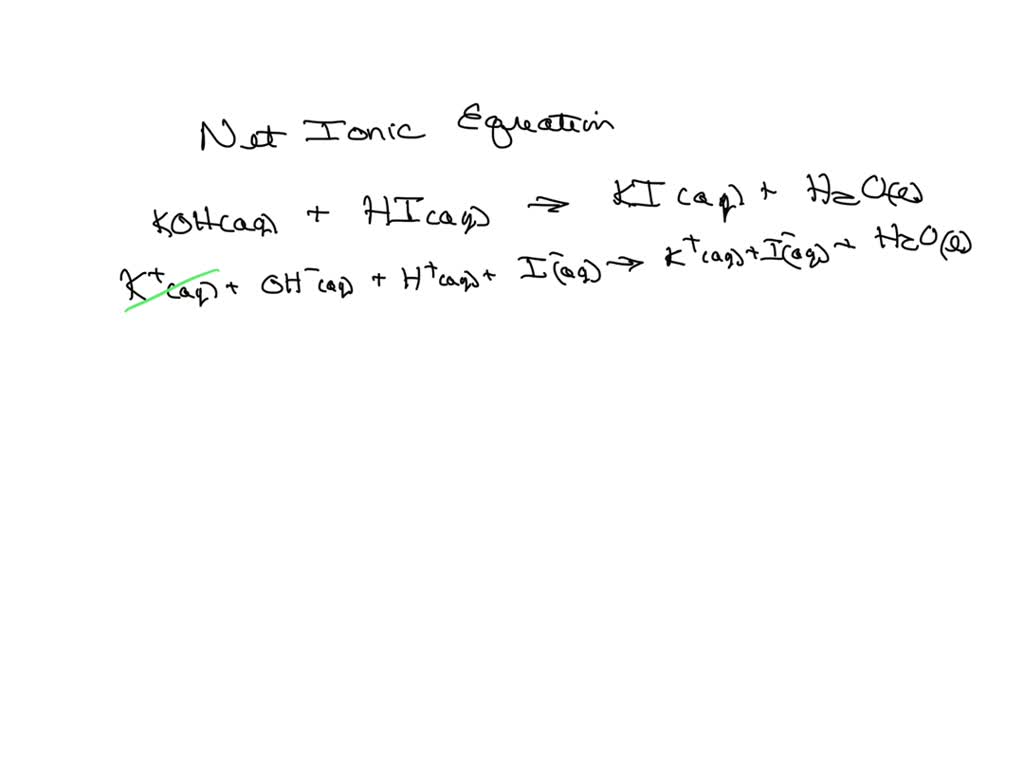 Net Ionic Equation
KOH(aq) + HI(aq) → KI(aq) + H₂O(l)
K⁺(aq) + OH⁻(aq) + H⁺(aq) + I⁻(aq) → K⁺(aq) + I⁻(aq) + H₂O(l)